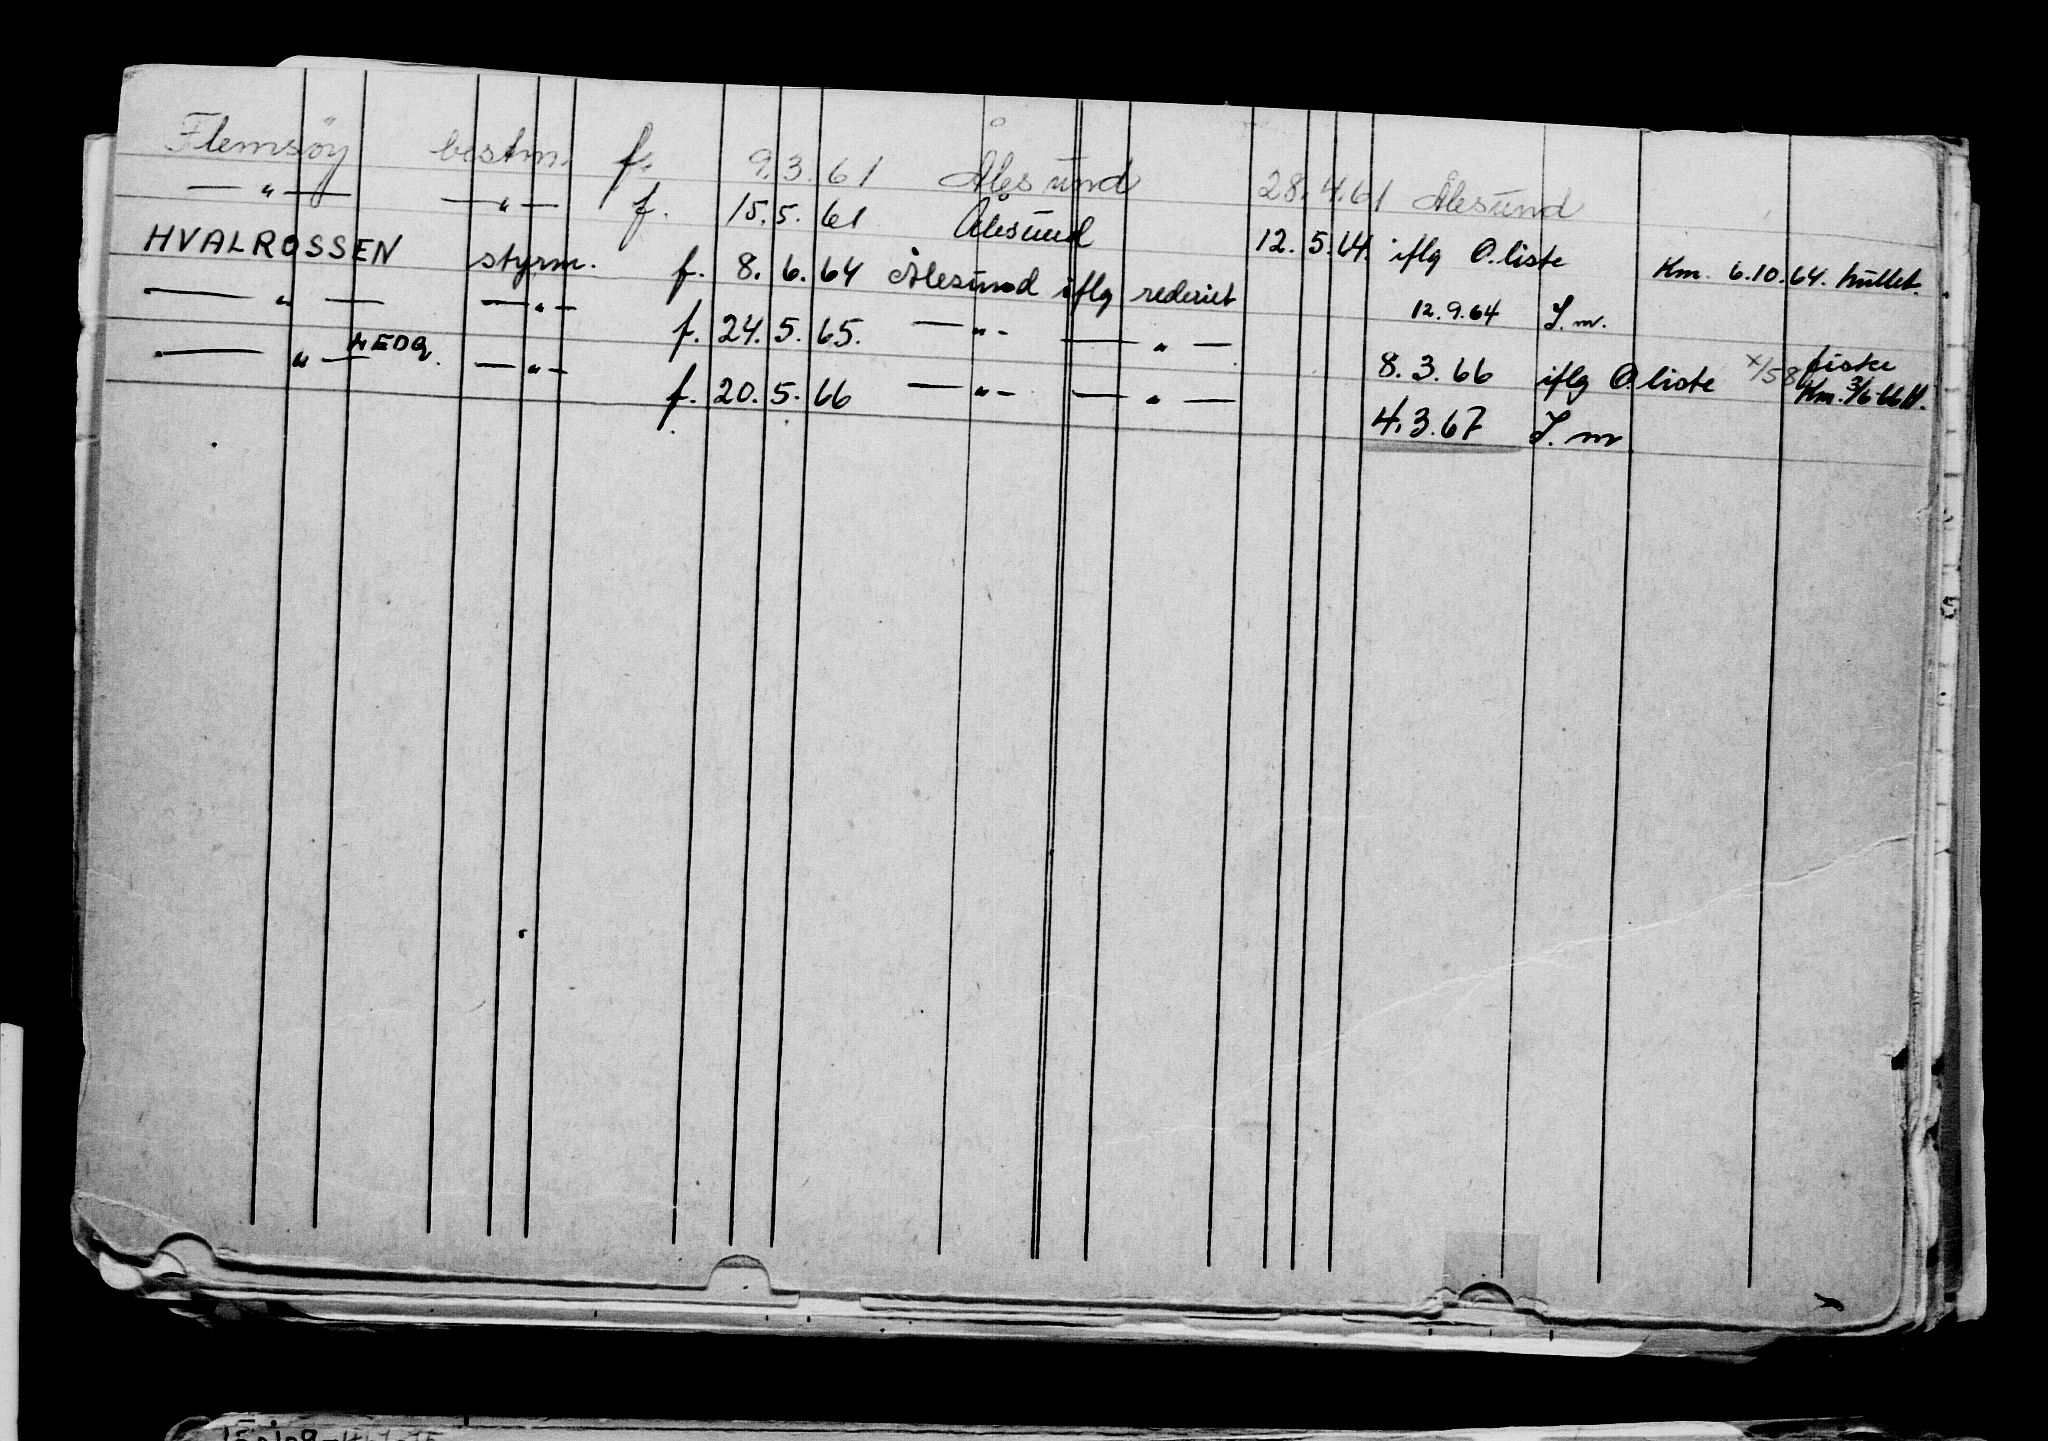 Flemsøy bestm. f. 9.3.61 Ålesund 28.4.61 Ålesund
— " — — " — f. 15.5.61 Ålesund 12.5.64. iflg O.liste Km. 6.10.64. hullet.
HVALROSSEN styrm. f. 8.6.64 Ålesund iflg rederiet 12.9.64 S.m.
— " — — " — f. 24.5.65. — " — — " — 8.3.66 iflg O liste x/58 fiske
— " — LEDQ. — " — f. 20.5.66 — " — — " — 4.3.67 S.m Km. 3/6-66 H.